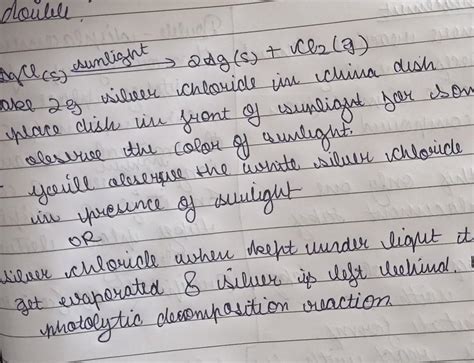 double.
AgCl(s) sunlight → 2Ag(s) + Cl2(g)
Take 2g silver chloride in china dish
place dish in front of sunlight for som
observe the color of sunlight.
you'll observe the white silver chloride
in presence of sunlight
OR
silver chloride when kept under light it
get evaporated & silver is left behind.
photolytic decomposition reaction